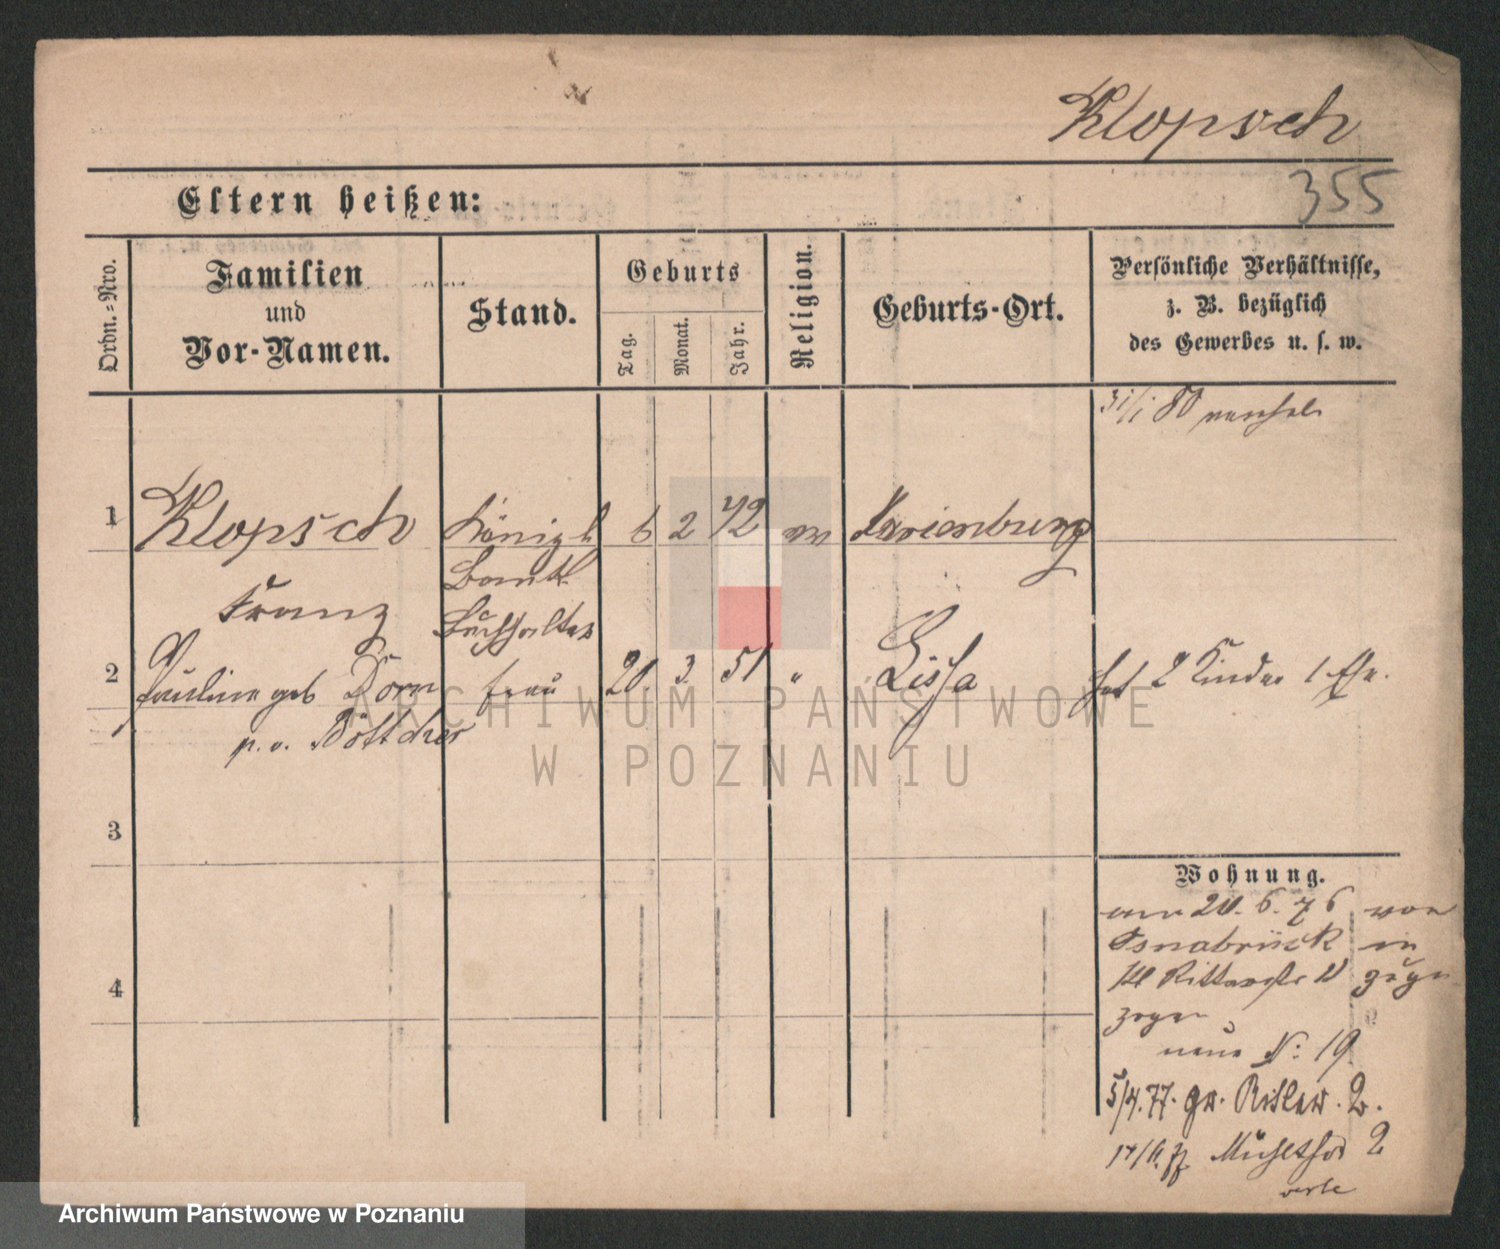 Klopsch
355
Eltern heißen:
Ordn.-Nro.
Familien
und
Vor-Namen.
Stand.
Geburts
Tag.
Monat.
Jahr.
Religion.
Geburts-Ort.
Persönliche Verhältnisse,
z. B. bezüglich
des Gewerbes u. s. w.
31/1 80
1
Klopsch
Franz
Königl
Bank
Buchhalter
6 2 42
ev
Marienburg
2
Pauline geb Dorn
p. v. Böttcher
Frau
20 3 51
"
Lissa
hat 2 Kinder 1 Ehe.
3
4
Wohnung.
am 20. 6. 76 von
Osnabrück in
Kl Ritterstr zuge
zogen
neue N: 19
5/4. 77. gr. Ritter. 2.
Mühlthor 2
ARCHIWUM PAŃSTWOWE
W POZNANIU
Archiwum Państwowe w Poznaniu